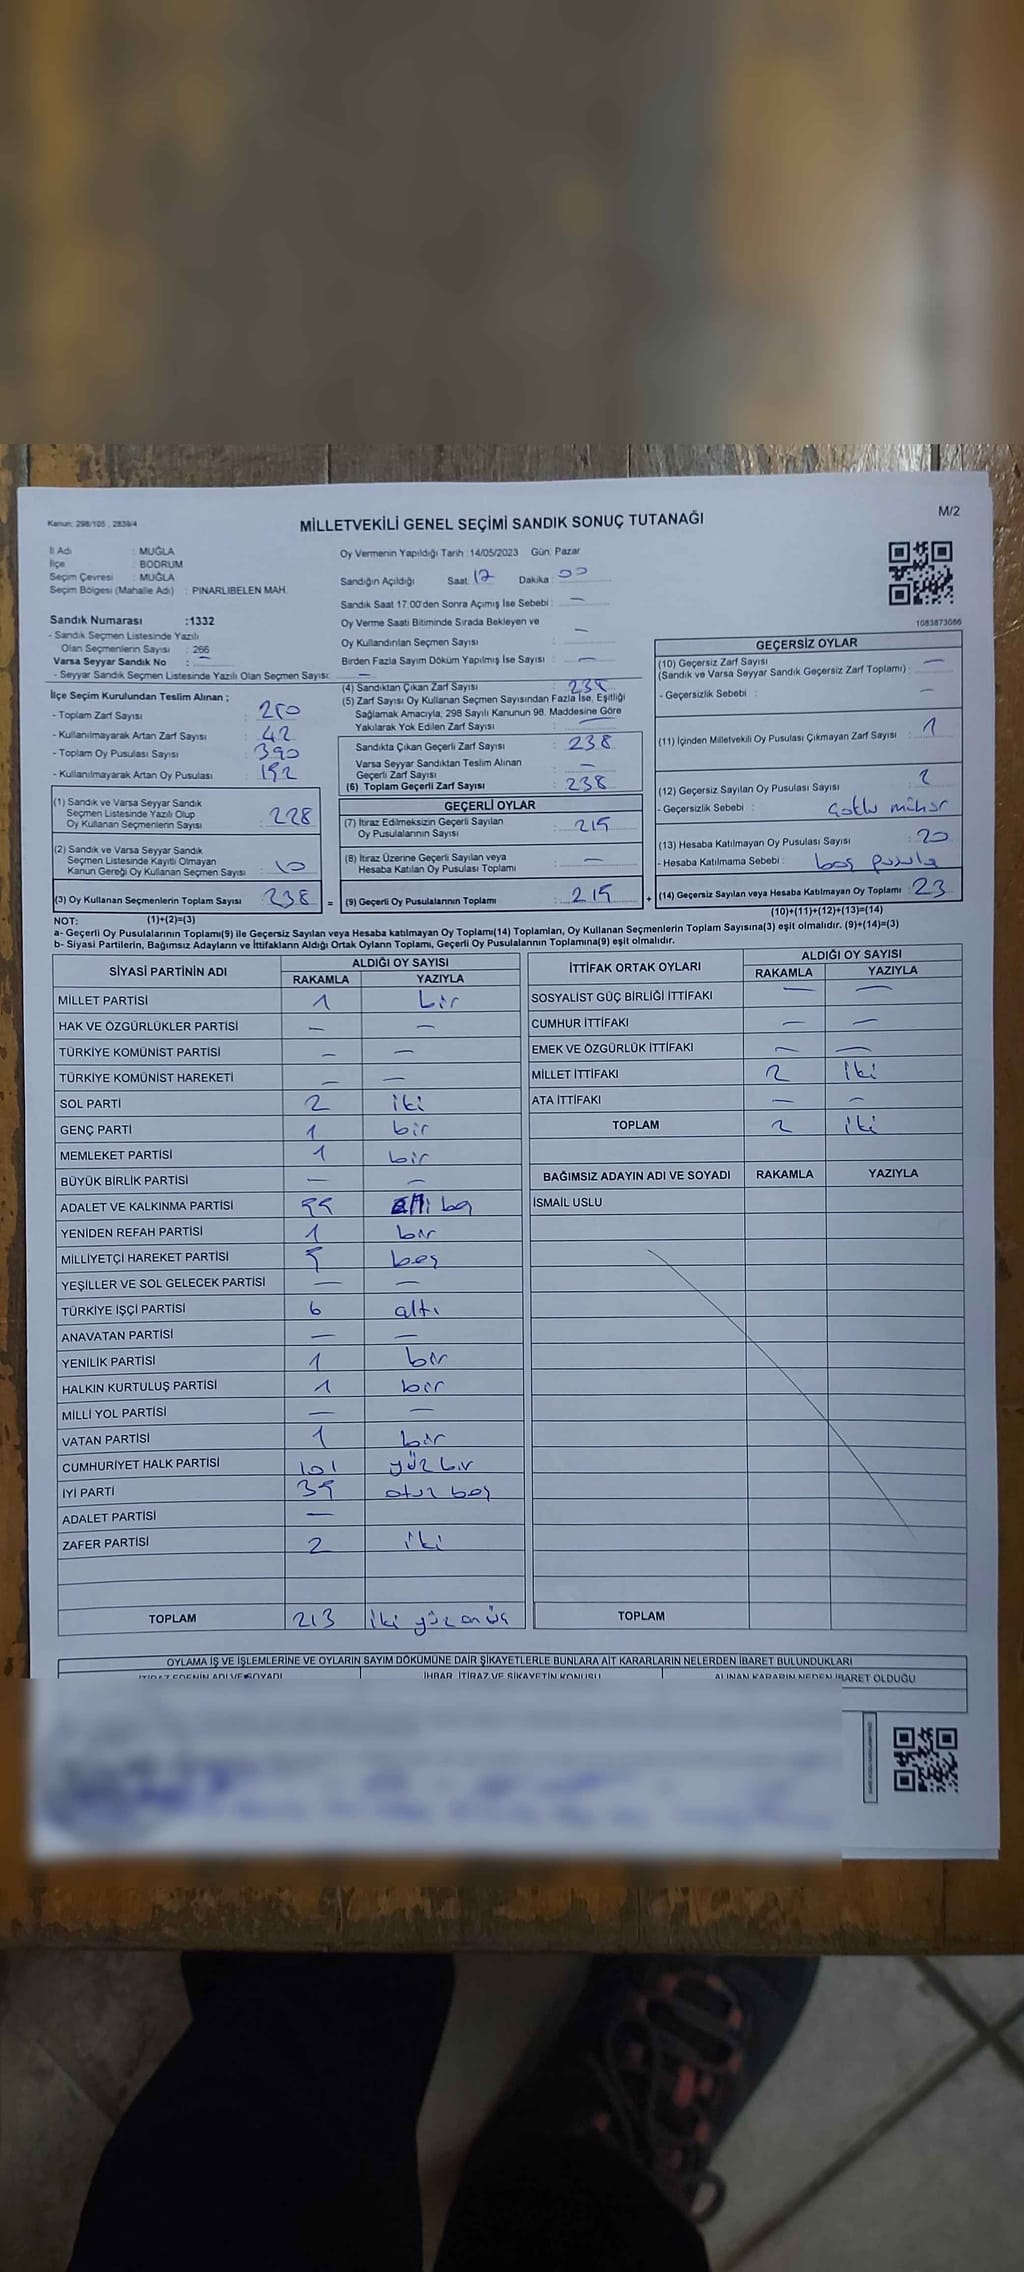 Kanun: 298/105 , 2839/4
MİLLETVEKİLİ GENEL SEÇİMİ SANDIK SONUÇ TUTANAĞI
M/2
İl Adı : MUĞLA
İlçe : BODRUM
Seçim Çevresi : MUĞLA
Seçim Bölgesi (Mahalle Adı) : PINARLIBELEN MAH.
Sandık Numarası :1332
- Sandık Seçmen Listesinde Yazılı
Olan Seçmenlerin Sayısı : 266
Varsa Seyyar Sandık No : —
- Seyyar Sandık Seçmen Listesinde Yazılı Olan Seçmen Sayısı: —
Oy Vermenin Yapıldığı Tarih :14/05/2023 Gün: Pazar
Sandığın Açıldığı Saat: 17 Dakika : 00
Sandık Saat 17:00'den Sonra Açımış İse Sebebi : —
Oy Verme Saati Bitiminde Sırada Bekleyen ve
Oy Kullandırılan Seçmen Sayısı : —
Birden Fazla Sayım Döküm Yapılmış İse Sayısı : —
1083873066
İlçe Seçim Kurulundan Teslim Alınan ;
- Toplam Zarf Sayısı
- Kullanılmayarak Artan Zarf Sayısı : 42
- Toplam Oy Pusulası Sayısı : 390
- Kullanılmayarak Artan Oy Pusulası : 152
(1) Sandık ve Varsa Seyyar Sandık
Seçmen Listesinde Yazılı Olup
Oy Kullanan Seçmenlerin Sayısı : 228
(2) Sandık ve Varsa Seyyar Sandık
Seçmen Listesinde Kayıtlı Olmayan
Kanun Gereği Oy Kullanan Seçmen Sayısı : 10
(3) Oy Kullanan Seçmenlerin Toplam Sayısı : 238 =
(4) Sandıktan Çıkan Zarf Sayısı : 238
(5) Zarf Sayısı Oy Kullanan Seçmen Sayısından Fazla İse, Eşitliği
Sağlamak Amacıyla; 298 Sayılı Kanunun 98. Maddesine Göre
Yakılarak Yok Edilen Zarf Sayısı : —
Sandıkta Çıkan Geçerli Zarf Sayısı : 238
Varsa Seyyar Sandıktan Teslim Alınan
Geçerli Zarf Sayısı : —
(6) Toplam Geçerli Zarf Sayısı : 238
GEÇERLİ OYLAR
(7) İtiraz Edilmeksizin Geçerli Sayılan
Oy Pusulalarının Sayısı : 215
(8) İtiraz Üzerine Geçerli Sayılan veya
Hesaba Katılan Oy Pusulası Toplamı : —
(9) Geçerli Oy Pusulalarının Toplamı : 215 +
GEÇERSİZ OYLAR
(10) Geçersiz Zarf Sayısı
(Sandık ve Varsa Seyyar Sandık Geçersiz Zarf Toplamı) : —
- Geçersizlik Sebebi : —
(11) İçinden Milletvekili Oy Pusulası Çıkmayan Zarf Sayısı : 1
(12) Geçersiz Sayılan Oy Pusulası Sayısı : 2
- Geçersizlik Sebebi : çoklu mühür
(13) Hesaba Katılmayan Oy Pusulası Sayısı : 20
- Hesaba Katılmama Sebebi : boş pusula
(14) Geçersiz Sayılan veya Hesaba Katılmayan Oy Toplamı : 23
NOT: (1)+(2)=(3)
(10)+(11)+(12)+(13)=(14)
a- Geçerli Oy Pusulalarının Toplamı(9) ile Geçersiz Sayılan veya Hesaba katılmayan Oy Toplamı(14) Toplamları, Oy Kullanan Seçmenlerin Toplam Sayısına(3) eşit olmalıdır. (9)+(14)=(3)
b- Siyasi Partilerin, Bağımsız Adayların ve İttifakların Aldığı Ortak Oyların Toplamı, Geçerli Oy Pusulalarının Toplamına(9) eşit olmalıdır.
SİYASİ PARTİNİN ADI ALDIĞI OY SAYISI
RAKAMLA YAZIYLA
MİLLET PARTİSİ 1 bir
HAK VE ÖZGÜRLÜKLER PARTİSİ — —
TÜRKİYE KOMÜNİST PARTİSİ — —
TÜRKİYE KOMÜNİST HAREKETİ — —
SOL PARTİ 2 iki
GENÇ PARTİ 1 bir
MEMLEKET PARTİSİ 1 bir
BÜYÜK BİRLİK PARTİSİ — —
ADALET VE KALKINMA PARTİSİ 55
YENİDEN REFAH PARTİSİ 1 bir
MİLLİYETÇİ HAREKET PARTİSİ 5 beş
YEŞİLLER VE SOL GELECEK PARTİSİ — —
TÜRKİYE İŞÇİ PARTİSİ 6 altı
ANAVATAN PARTİSİ — —
YENİLİK PARTİSİ 1 bir
HALKIN KURTULUŞ PARTİSİ 1 bir
MİLLİ YOL PARTİSİ — —
VATAN PARTİSİ 1 bir
CUMHURİYET HALK PARTİSİ 101 yüz bir
İYİ PARTİ 35 otuz beş
ADALET PARTİSİ —
ZAFER PARTİSİ 2 iki
TOPLAM 213 iki yüz on üç
İTTİFAK ORTAK OYLARI ALDIĞI OY SAYISI
RAKAMLA YAZIYLA
SOSYALİST GÜÇ BİRLİĞİ İTTİFAKI — —
CUMHUR İTTİFAKI — —
EMEK VE ÖZGÜRLÜK İTTİFAKI — —
MİLLET İTTİFAKI 2 iki
ATA İTTİFAKI — —
TOPLAM 2 iki
BAĞIMSIZ ADAYIN ADI VE SOYADI RAKAMLA YAZIYLA
İSMAİL USLU
TOPLAM
OYLAMA İŞ VE İŞLEMLERİNE VE OYLARIN SAYIM DÖKÜMÜNE DAİR ŞİKAYETLERLE BUNLARA AİT KARARLARIN NELERDEN İBARET BULUNDUKLARI
İTİRAZ EDENİN ADI VE SOYADI İHBAR, İTİRAZ VE ŞİKAYETİN KONUSU ALINAN KARARIN NEDEN İBARET OLDUĞU